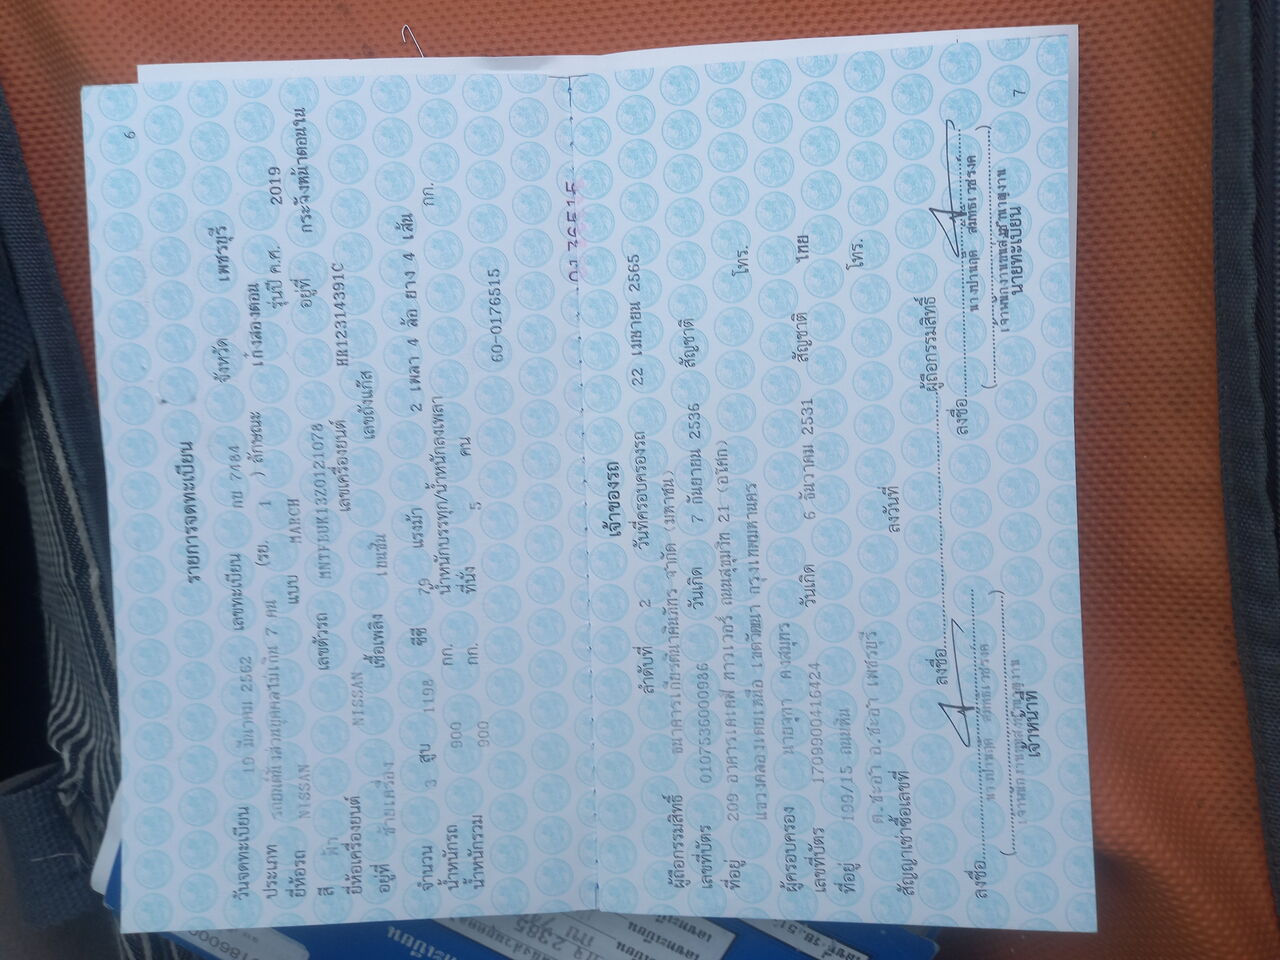 6
รายการจดทะเบียน
วันจดทะเบียน 19 มีนาคม 2562 เลขทะเบียน กย 7484 จังหวัด เพชรบุรี
ประเภท รถยนต์นั่งส่วนบุคคลไม่เกิน 7 คน (รย. 1 ) ลักษณะ เก๋งสองตอน
ยี่ห้อรถ NISSAN แบบ MARCH รุ่นปี ค.ศ. 2019
สี ฟ้า เลขตัวรถ อยู่ที่ กระจังหน้าตอนใน
ยี่ห้อเครื่องยนต์ NISSAN เลขเครื่องยนต์ HR12314391C
อยู่ที่ ซ้ายเครื่อง เชื้อเพลิง เบนซิน เลขถังแก๊ส
จำนวน 3 สูบ 1198 ซีซี 79 แรงม้า 2 เพลา 4 ล้อ ยาง 4 เส้น
น้ำหนักรถ 900 กก. น้ำหนักบรรทุก/น้ำหนักลงเพลา กก.
น้ำหนักรวม 900 กก. ที่นั่ง 5 คน
60-0176515
เจ้าของรถ
ลำดับที่ 2 วันที่ครอบครองรถ 22 เมษายน 2565
ผู้ถือกรรมสิทธิ์ ธนาคารเกียรตินาคินภัทร จำกัด (มหาชน)
เลขที่บัตร 0107536000986 วันเกิด 7 กันยายน 2536 สัญชาติ
ที่อยู่ 209 อาคารเคเคพี ทาวเวอร์ ถนนสุขุมวิท 21 (อโศก) โทร.
แขวงคลองเตยเหนือ เขตวัฒนา กรุงเทพมหานคร
ผู้ครอบครอง นายจุฑา คงสมุทร
เลขที่บัตร 1709900416424 วันเกิด 6 ธันวาคม 2531 สัญชาติ ไทย
ที่อยู่ 199/15 ถนน โทร.
ต.ชะอำ อ.ชะอำ เพชรบุรี
สัญญาเช่าซื้อเลขที่ ลงวันที่
ลงชื่อ ผู้ถือกรรมสิทธิ์
ลงชื่อ ลงชื่อ
เจ้าหน้าที่ นายทะเบียน
7